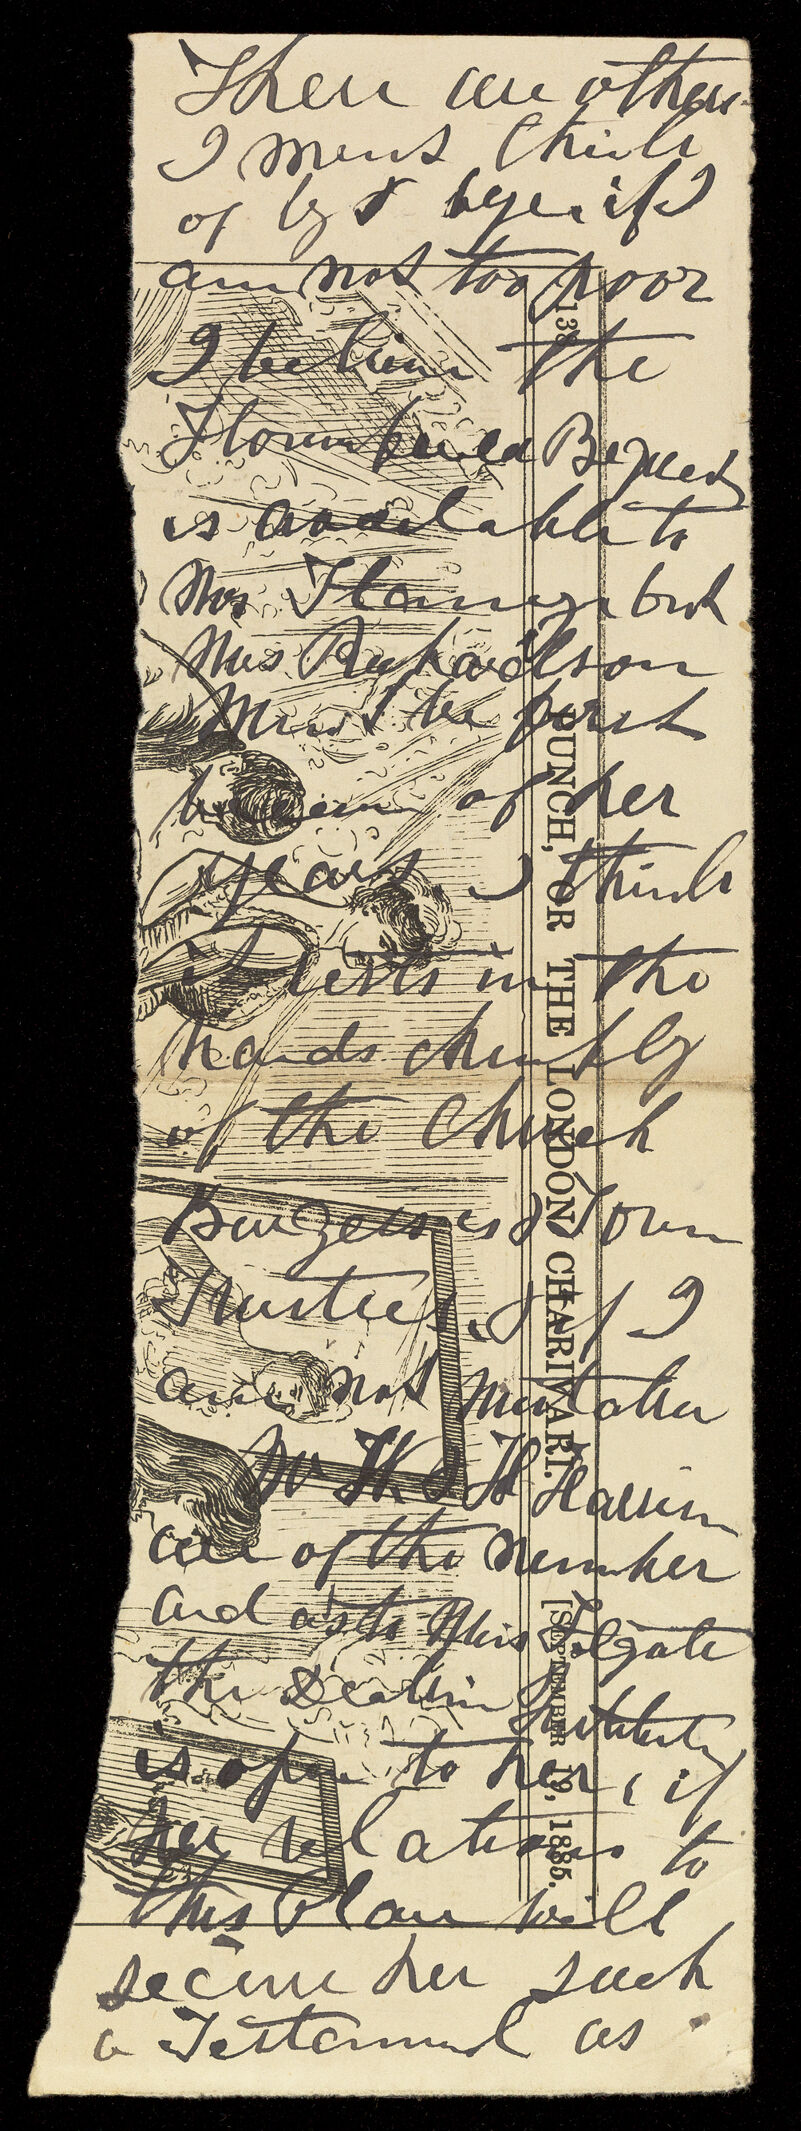 There are others
I must think
of by & bye if I
am not too poor
I believe the
Bequest
is available to
Mrs but
Mrs Richardson
Must be first
of her
years I think
it rests in the
hands chiefly
of the Church
Burgesses & Town
Trustees, & if I
am not mistaken
Mr & H
are of the number
and as to Miss Folgate
the
is open to her, if
her relations to
this place will
secure her such
a Testamental as
138
PUNCH, OR THE LONDON CHARIVARI.
[SEPTEMBER 19, 1885.